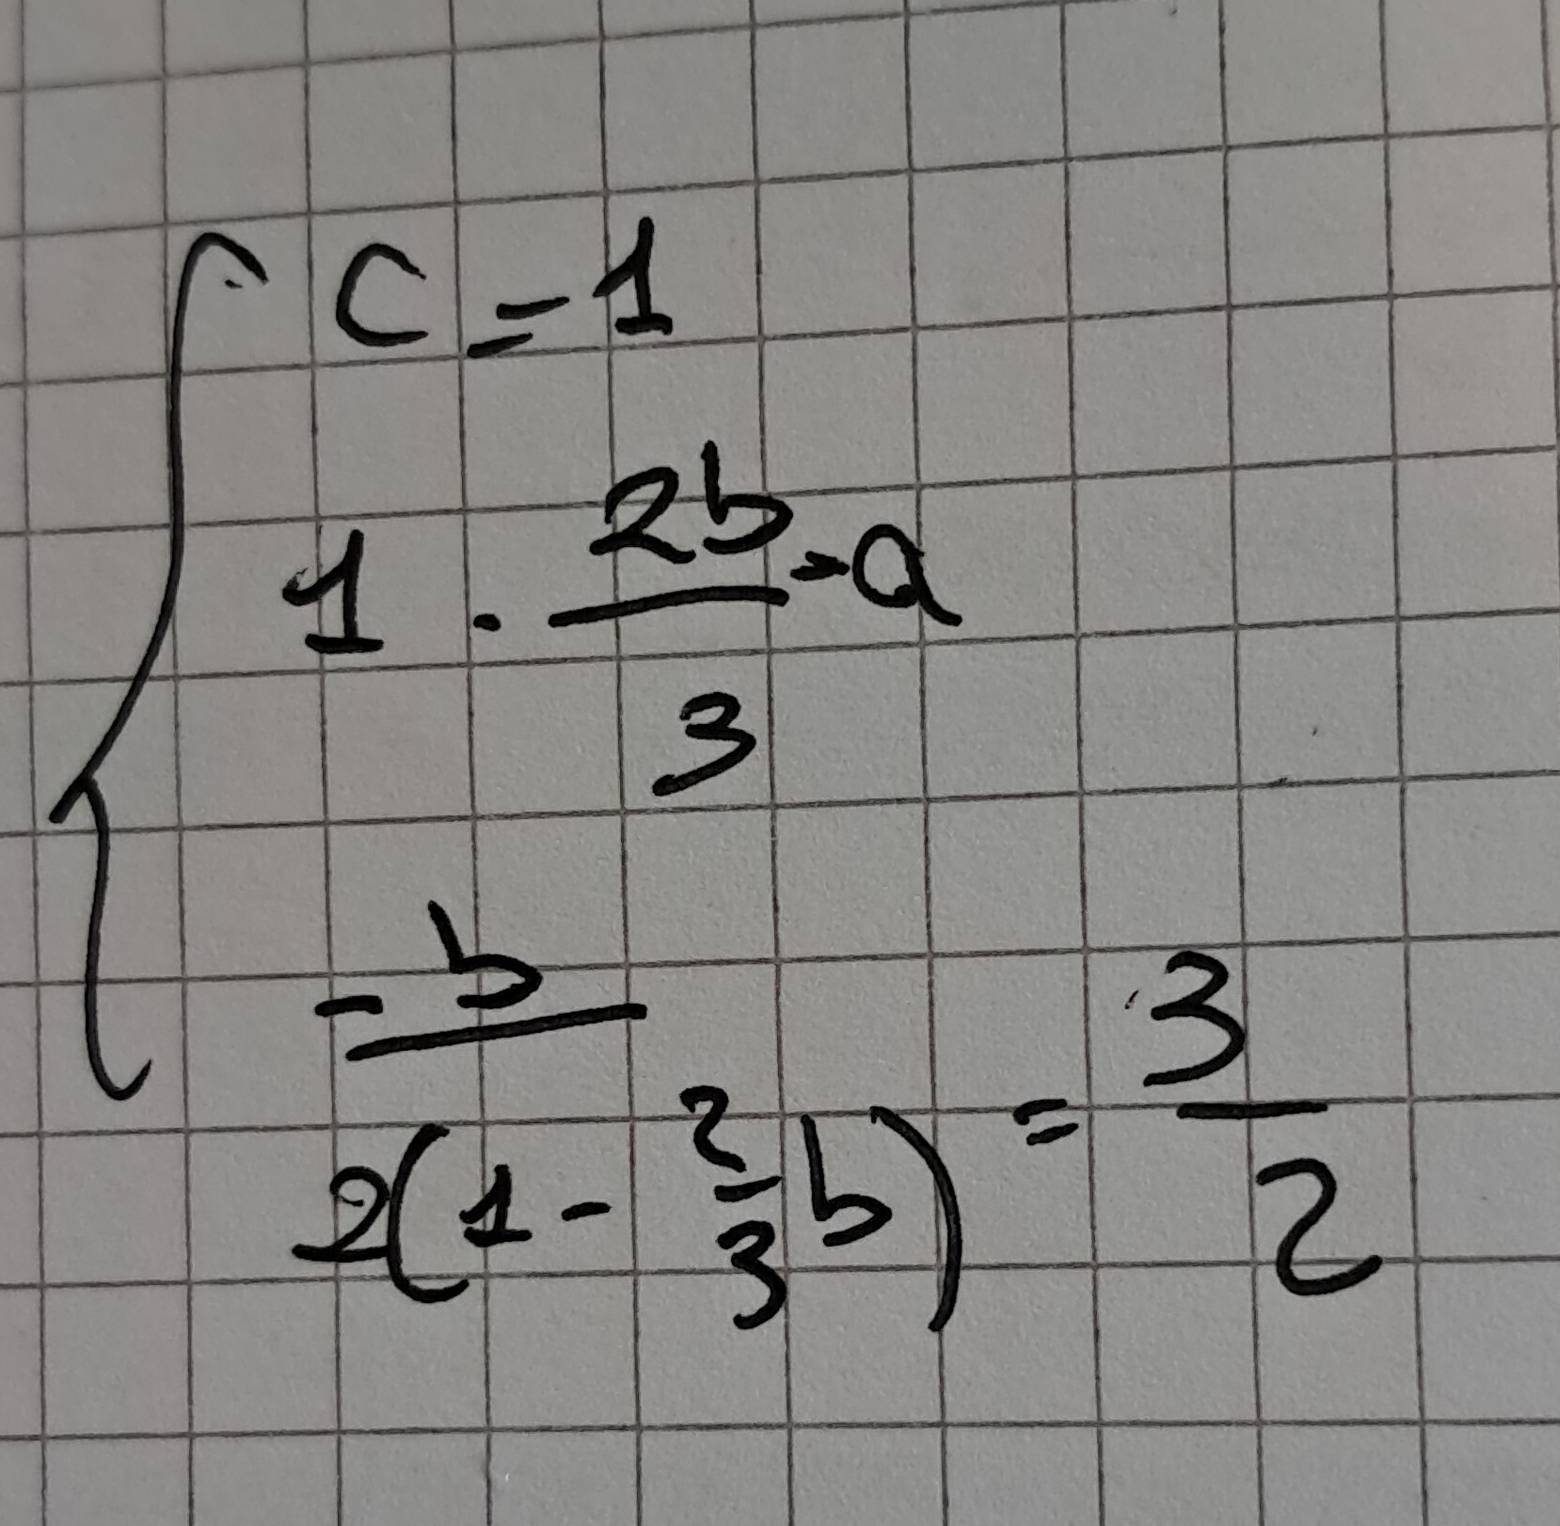 c = 1
1 - 2b/3 = a
-b / 2(1 - 2/3 b) = 3/2